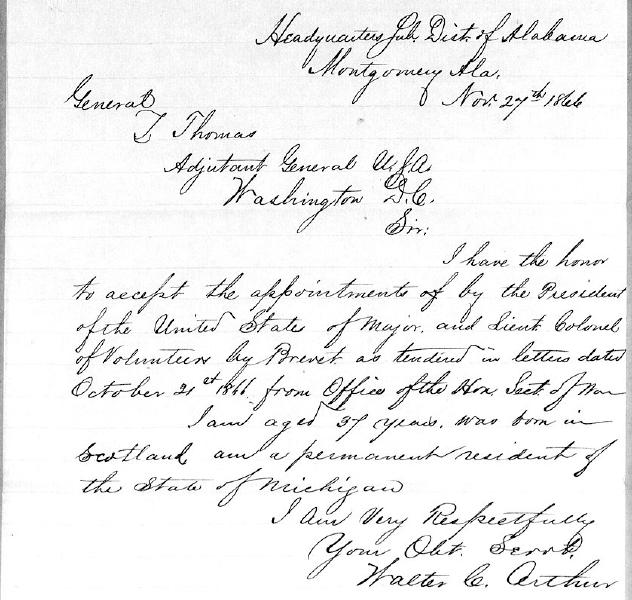 Headquarters Sub. Dist. of Alabama
Montgomery Ala.
Nov. 27th 1866
General
L Thomas
Adjutant General U.S.A.
Washington D.C.
Sir:
I have the honor
to accept the appointments of by the President
of the United States of Major, and Lieut Colonel
of Volunteers by Brevet as tendered in letters dated
October 21st 1866 from Office of the Hon. Sect. of War
I am aged 37 years, was born in
Scotland am a permanent resident of
the State of Michigan
I Am Very Respectfully
Your Obt. Servt.
Walter C. Arthur